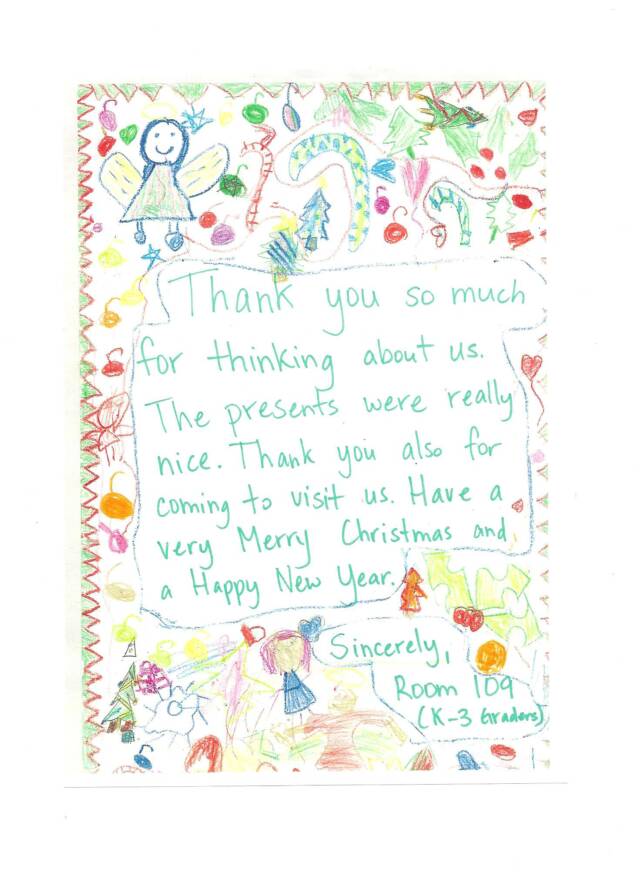 Thank you so much
for thinking about us.
The presents were really
nice. Thank you also for
coming to visit us. Have a
very Merry Christmas and
a Happy New Year.
Sincerely,
Room 109
(K-3 Graders)